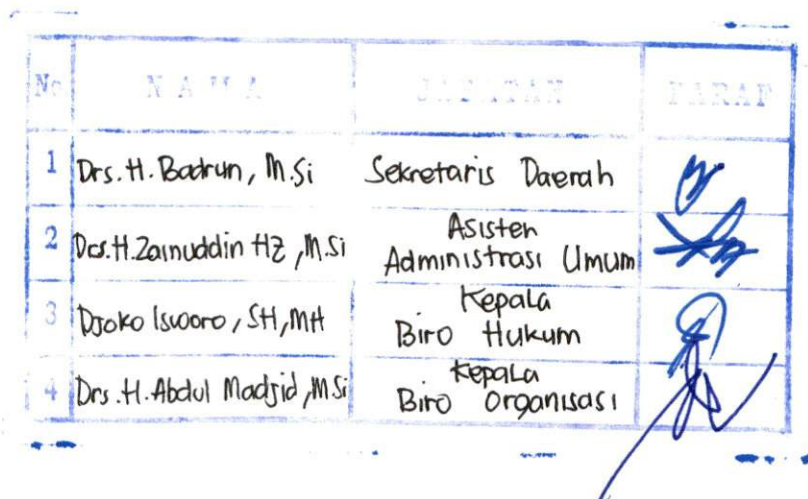 No N A M A JABATAN PARAF
1 Drs. H. Badrun, M.Si Sekretaris Daerah
2 Drs. H. Zainuddin HZ, M.Si Asisten Administrasi Umum
3 Djoko Iswooro, SH, MH Kepala Biro Hukum
4 Drs. H. Abdul Madjid, M.Si Kepala Biro Organisasi